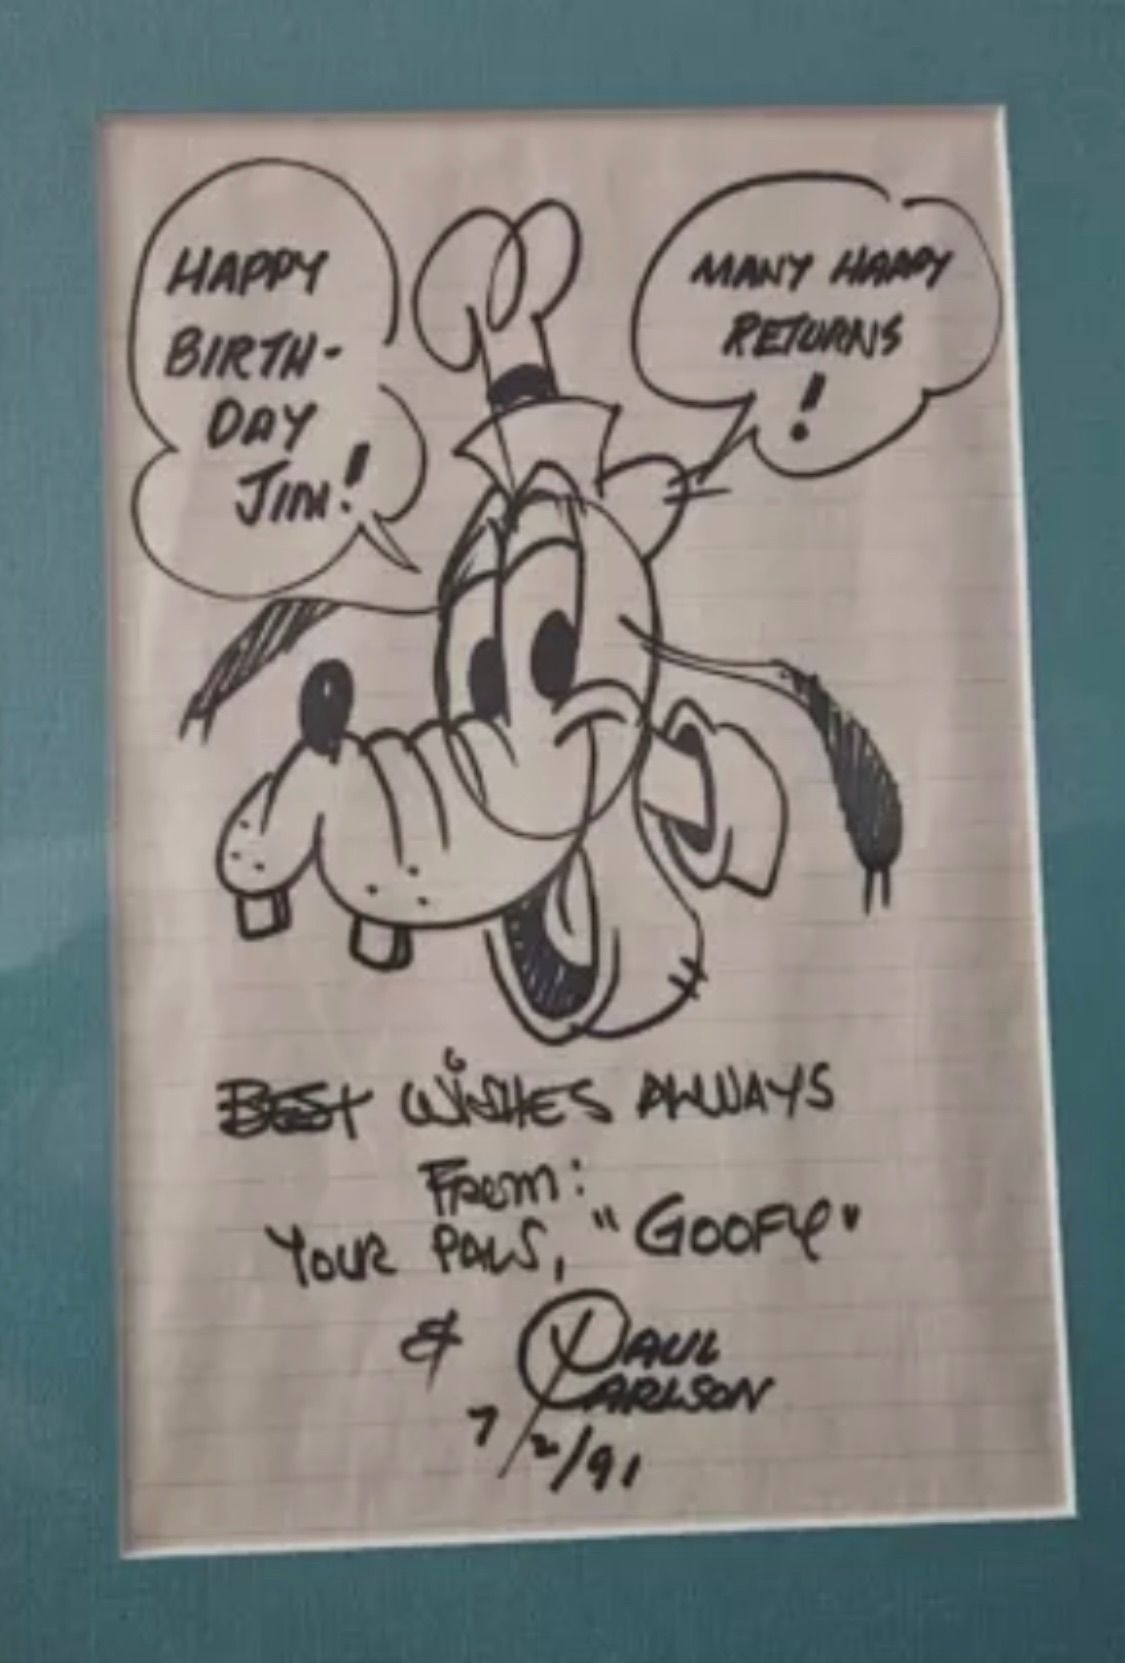 HAPPY
BIRTH-
DAY
JIM!
MANY HAPPY
RETURNS
!
BEST WISHES ALWAYS
FROM:
YOUR PALS, "GOOFY"
& PAUL
CARLSON
7/2/91